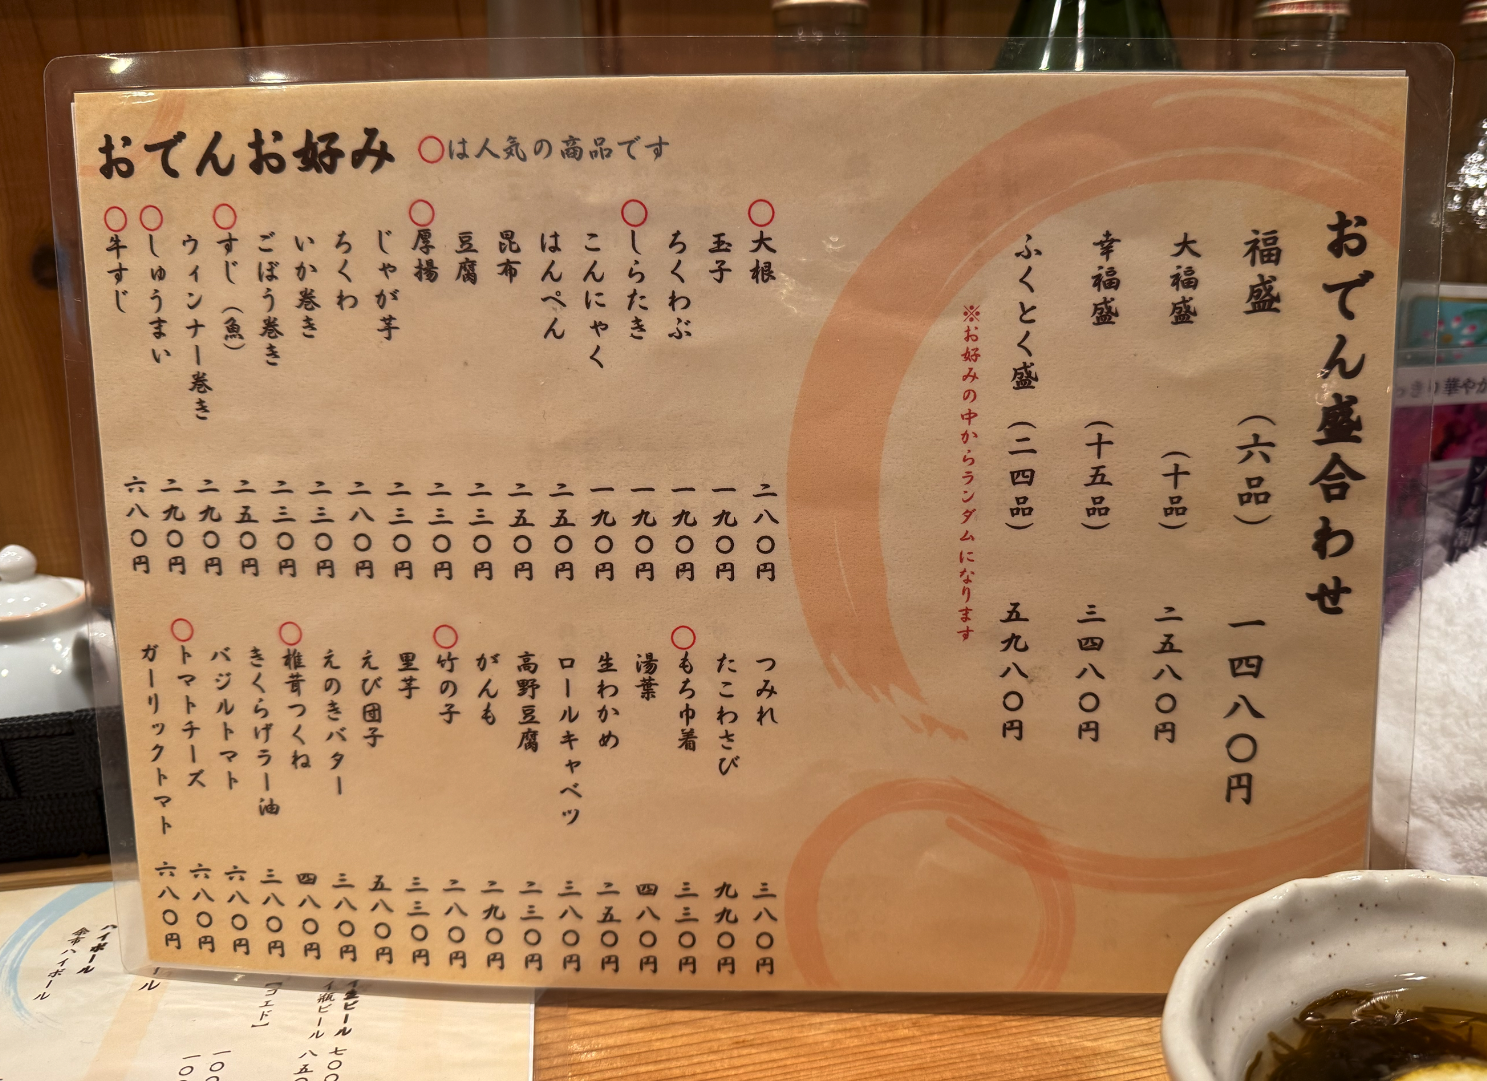 おでん盛合わせ
福盛 （六品） 一四八〇円
大福盛 （十品） 二五八〇円
幸福盛 （十五品） 三四八〇円
ふくとく盛 （二四品） 五九八〇円
※お好みの中からランダムになります
おでんお好み ○は人気の商品です
○大根 二八〇円
玉子 一九〇円
ちくわぶ 一九〇円
○しらたき 一九〇円
こんにゃく 一九〇円
はんぺん 二五〇円
昆布 二五〇円
豆腐 二三〇円
○厚揚 二三〇円
じゃが芋 二三〇円
ちくわ 二八〇円
いか巻き 二三〇円
ごぼう巻き 二三〇円
○すじ（魚） 二五〇円
ウィンナー巻き 二九〇円
○しゅうまい 二九〇円
○牛すじ 六八〇円
つみれ 三八〇円
たこわさび 九九〇円
○もち巾着 三三〇円
湯葉 四八〇円
生わかめ 二五〇円
ロールキャベツ 三八〇円
高野豆腐 二三〇円
がんも 二九〇円
○竹の子 二八〇円
里芋 三三〇円
えび団子 五八〇円
えのきバター 三八〇円
○椎茸つくね 四八〇円
きくらげラー油 三八〇円
バジルトマト 六八〇円
○トマトチーズ 六八〇円
ガーリックトマト 六八〇円
生ビール 七〇〇
瓶ビール 八五〇
【コエド】
ハイボール
ハイボール